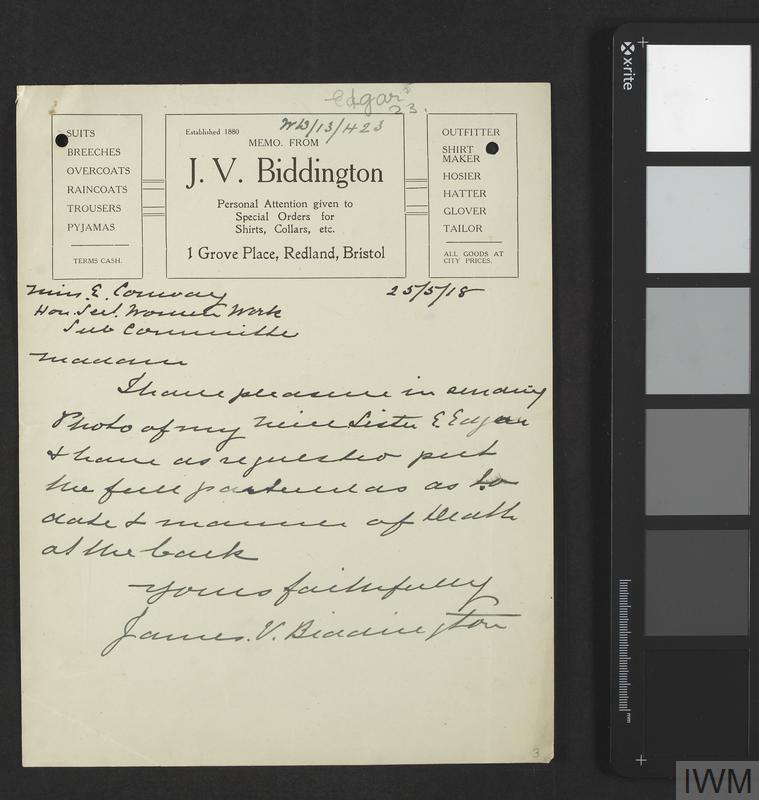 Edgar
23.
WW/13/H23
SUITS
BREECHES
OVERCOATS
RAINCOATS
TROUSERS
PYJAMAS
TERMS CASH.
Established 1880
MEMO. FROM
J. V. Biddington
Personal Attention given to
Special Orders for
Shirts, Collars, etc.
1 Grove Place, Redland, Bristol
OUTFITTER
SHIRT
MAKER
HOSIER
HATTER
GLOVER
TAILOR
ALL GOODS AT
CITY PRICES.
Miss. E. Conway 25/5/18
Hon. Sect. Women Work
Sub Committe
Madam
I have pleasure in sending
Photo of my Niece Sister E Edgar
& have as requested put
the full particulars as to
date & manner of Death
at the back
Yours faithfully
James. V. Biddington
3
x-rite
mm
IWM